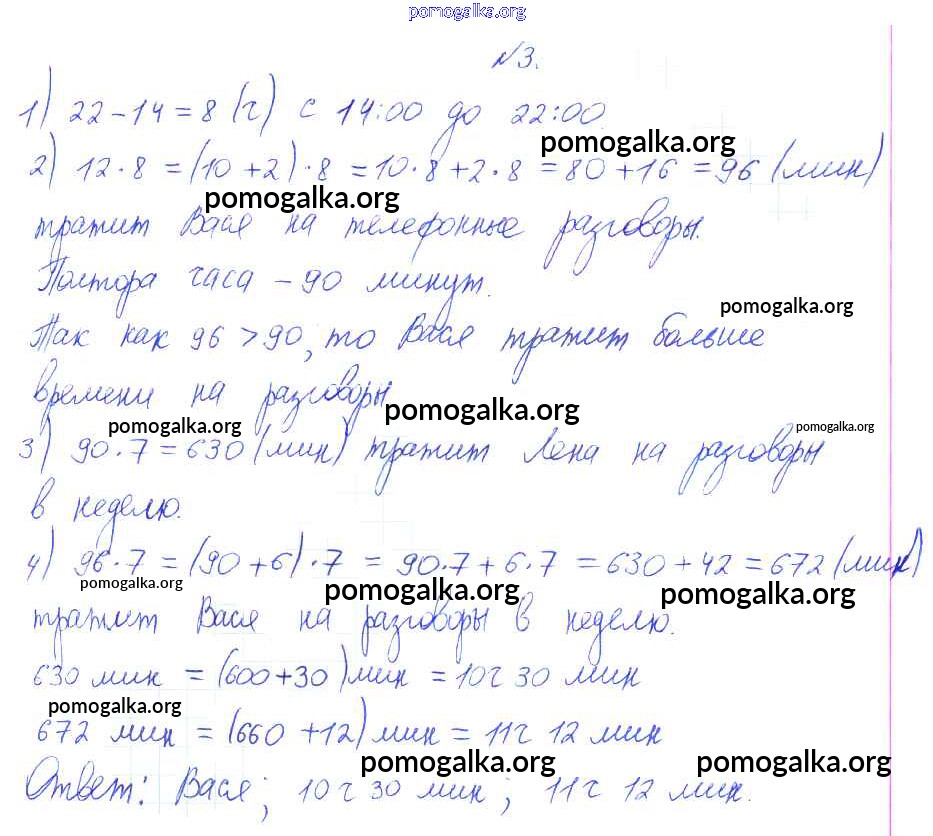 pomogalka.org
№3.
1) 22-14=8 (ч) с 14:00 до 22:00
pomogalka.org
2) 12·8=(10+2)·8=10·8+2·8=80+16=96 (мин)
pomogalka.org
тратит Вася на телефонные разговоры.
Полтора часа - 90 минут.
pomogalka.org
Так как 96>90, то Вася тратит больше
времени на разговоры
pomogalka.org
pomogalka.org
pomogalka.org
3) 90·7=630 (мин) тратит Лена на разговоры
в неделю.
4) 96·7=(90+6)·7=90·7+6·7=630+42=672 (мин)
pomogalka.org
pomogalka.org
pomogalka.org
тратит Вася на разговоры в неделю.
630 мин = (600+30) мин = 10ч 30 мин
pomogalka.org
672 мин = (660+12) мин = 11ч 12 мин
pomogalka.org
pomogalka.org
Ответ: Вася; 10ч 30 мин; 11ч 12 мин.